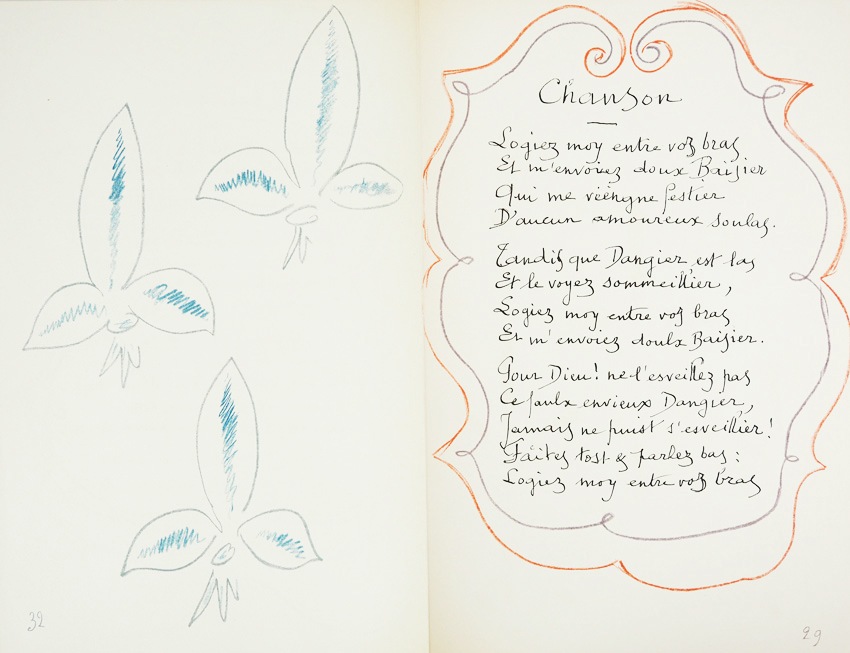 32
Chanson
Logiez moy entre voz bras
Et m'envoiez doux Baisier
Qui me viengne festier
D'aucun amoureux soulas.
Tandis que Dangier est las
Et le voyez sommeillier,
Logiez moy entre voz bras
Et m'envoiez doulx Baisier.
Pour Dieu! ne l'esveillez pas
Ce faulx envieux Dangier,
Jamais ne puist s'esveillier!
Faites tost & parlez bas:
Logiez moy entre voz bras
29